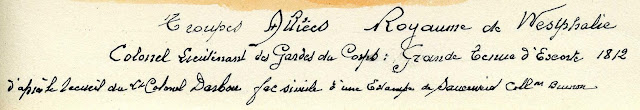 Troupes Alliées Royaume de Westphalie
Colonel Lieutenant des Gardes du Corps : Grande Tenue d'Escorte 1812
d'après le recueil du Lt Colonel Darbou fac simile d'une Estampe de Sauerweid Coll.on